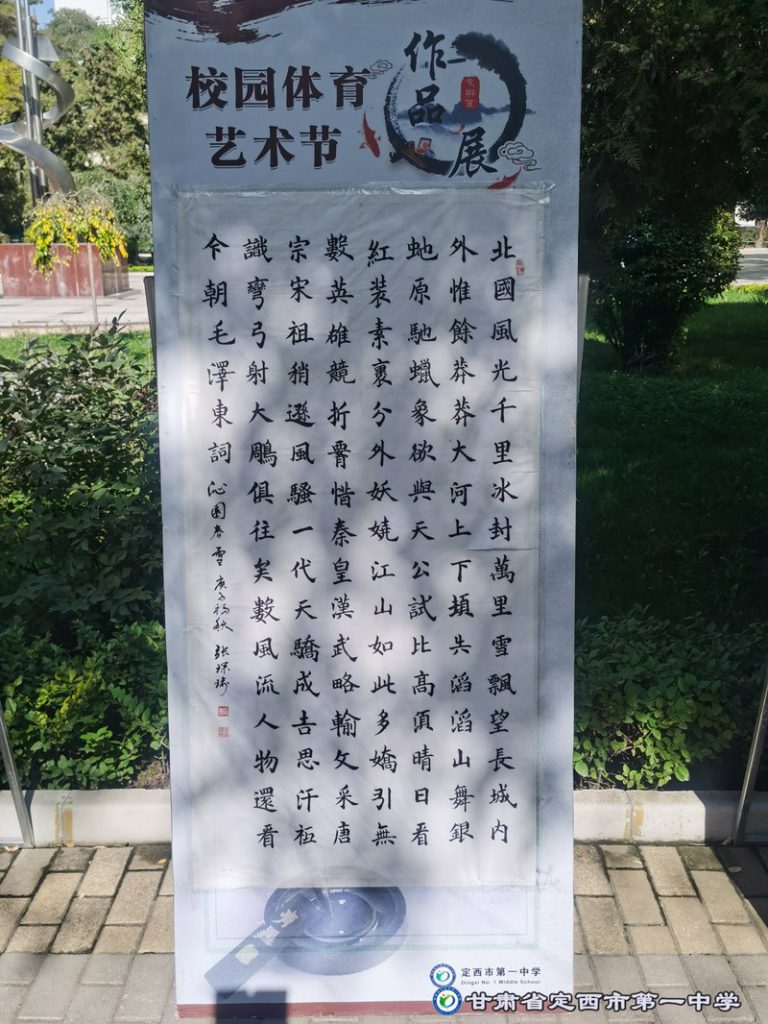 校园体育
艺术节
作品展
北國風光千里冰封萬里雪飄望長城內
外惟餘莽莽大河上下頓失滔滔山舞銀
虵原馳蠟象欲與天公試比高須晴日看
紅装素裹分外妖嬈江山如此多嬌引無
數英雄競折腰惜秦皇漢武略輸文采唐
宗宋祖稍遜風騷一代天驕成吉思汗衹
識彎弓射大鵰俱往矣數風流人物還看
今朝毛澤東詞 沁園春雪 庚子初秋
定西市第一中学
Dingxi No. 1 Middle School
甘肃省定西市第一中学